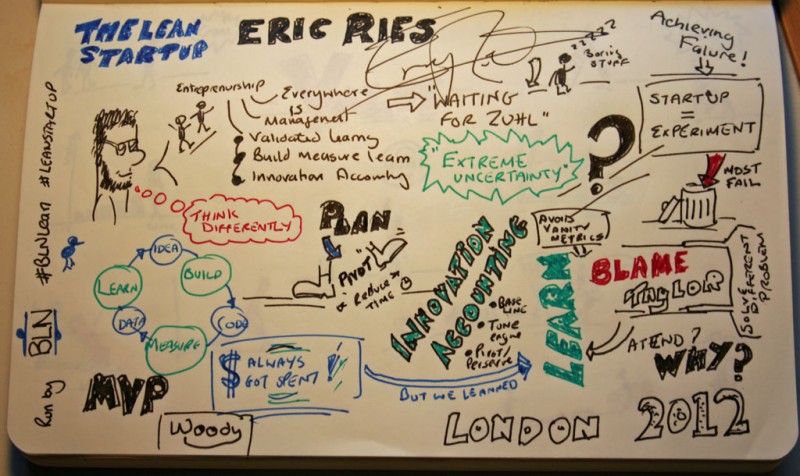 THE LEAN
STARTUP
ERIC RIES
Achieving
Failure!
ZZZZZ
Boring
STUFF
Entreprenurship
Everywhere
IS
Management
Validated learng
Build Measure Learn
Innovation Accounting
"WAITING
FOR ZUHL"
"EXTREME
UNCERTAINTY"
?
STARTUP
=
EXPERIMENT
MOST
FAIL
THINK
DIFFERENTLY
PLAN
"PIVOT"
REDUCE
TIME
INNOVATION
ACCOUNTING
BASE
LINE
TUNE
engine
PIVOT/
AVOID
VANITY
METRICS
LEARN
BLAME
TAYLOR
SOLVE
DIFFERENT
PROBLEM
ATEND?
WHY?
IDEA
BUILD
CODE
MEASURE
DATA
LEARN
MVP
$ ALWAYS
GOT SPENT!
BUT WE LEARNED
Woody
LONDON 2012
Run by BLN #BLNLean #LEANSTARTUP